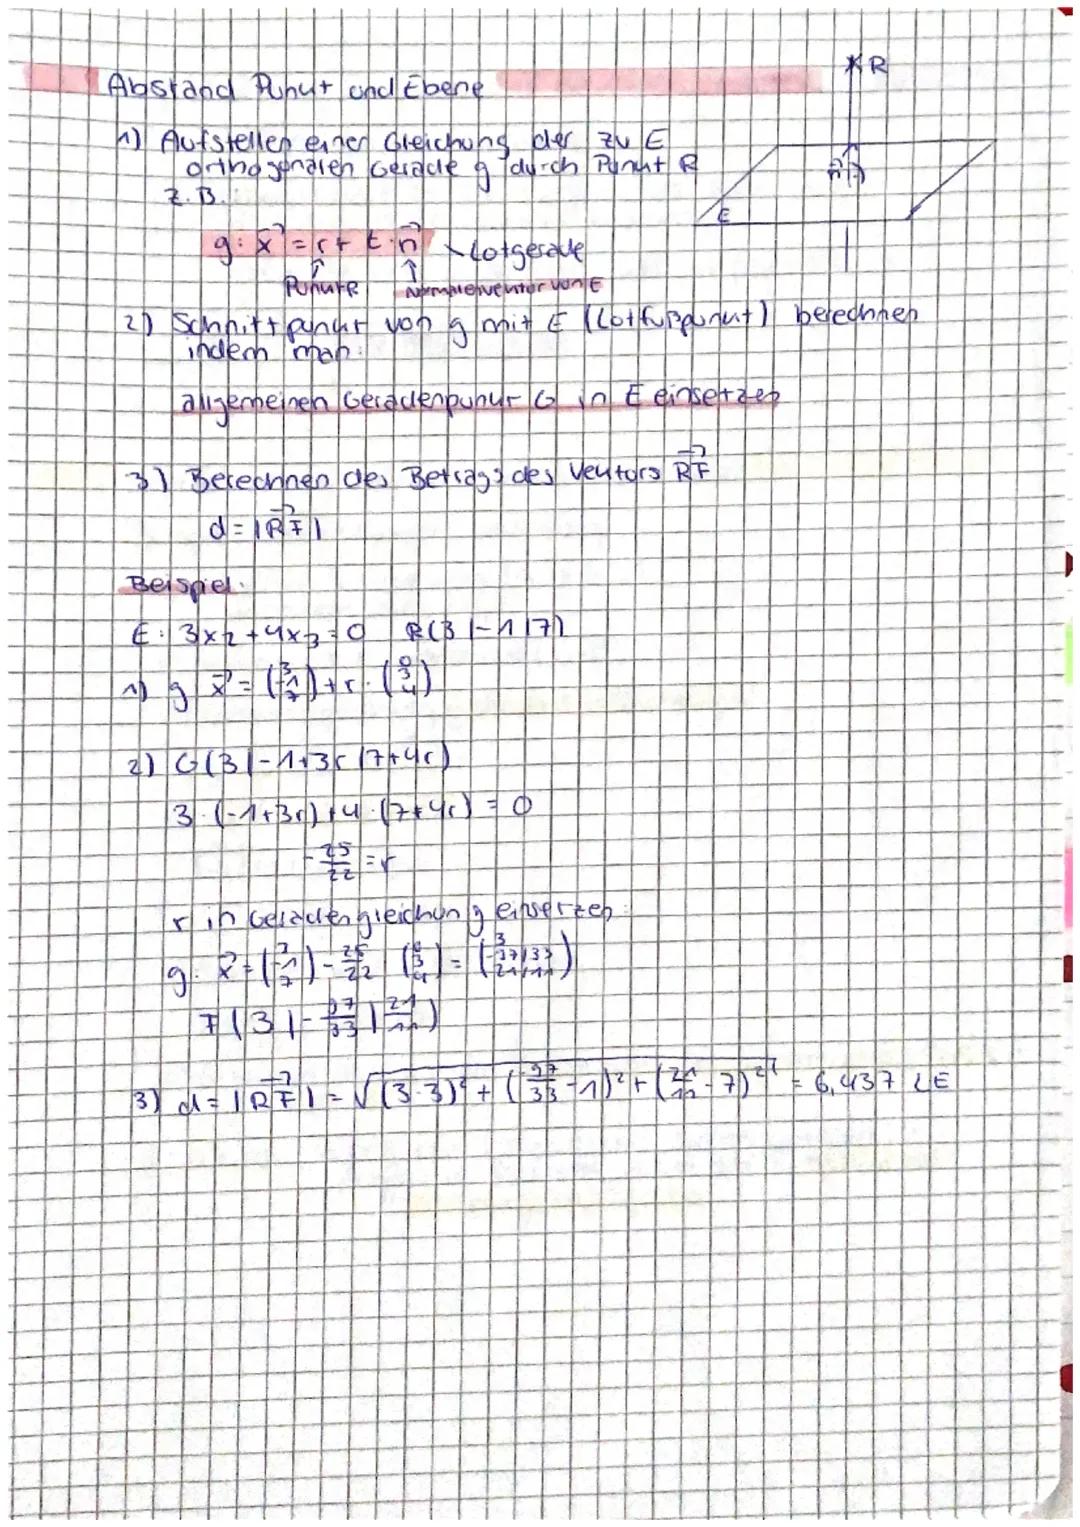 Abstand Punkt und Ebene
R
1) Aufstellen einer Gleichung der zu E
orthogonalen Gerade g durch Punkt R
z.B.
n
E
g: x = r + t · n Lotgerade
Punkt R Normalenvektor von E
2) Schnittpunkt von g mit E (Lotfußpunkt) berechnen
indem man:
allgemeinen Geradenpunkt G in E einsetzen
3) Berechnen des Betrags des Vektors RF
d = |RF|
Beispiel:
E: 3x₂ + 4x₃ = 0 R(3|-1|7)
1) g x = (3 -1 7) + r · (0 3 4)
2) G(3|-1+3r|7+4r)
3 · (-1+3r) + 4 · (7+4r) = 0
- 25/22 = r
r in Geradengleichung einsetzen:
g: x = (3 -1 7) - 25/22 (0 3 4) = (3 -97/33 21/11)
F(3|-97/33|21/11)
3) d = |RF| = √((3-3)² + (97/33 - 1)² + (21/11 - 7)²) = 6,437 LE